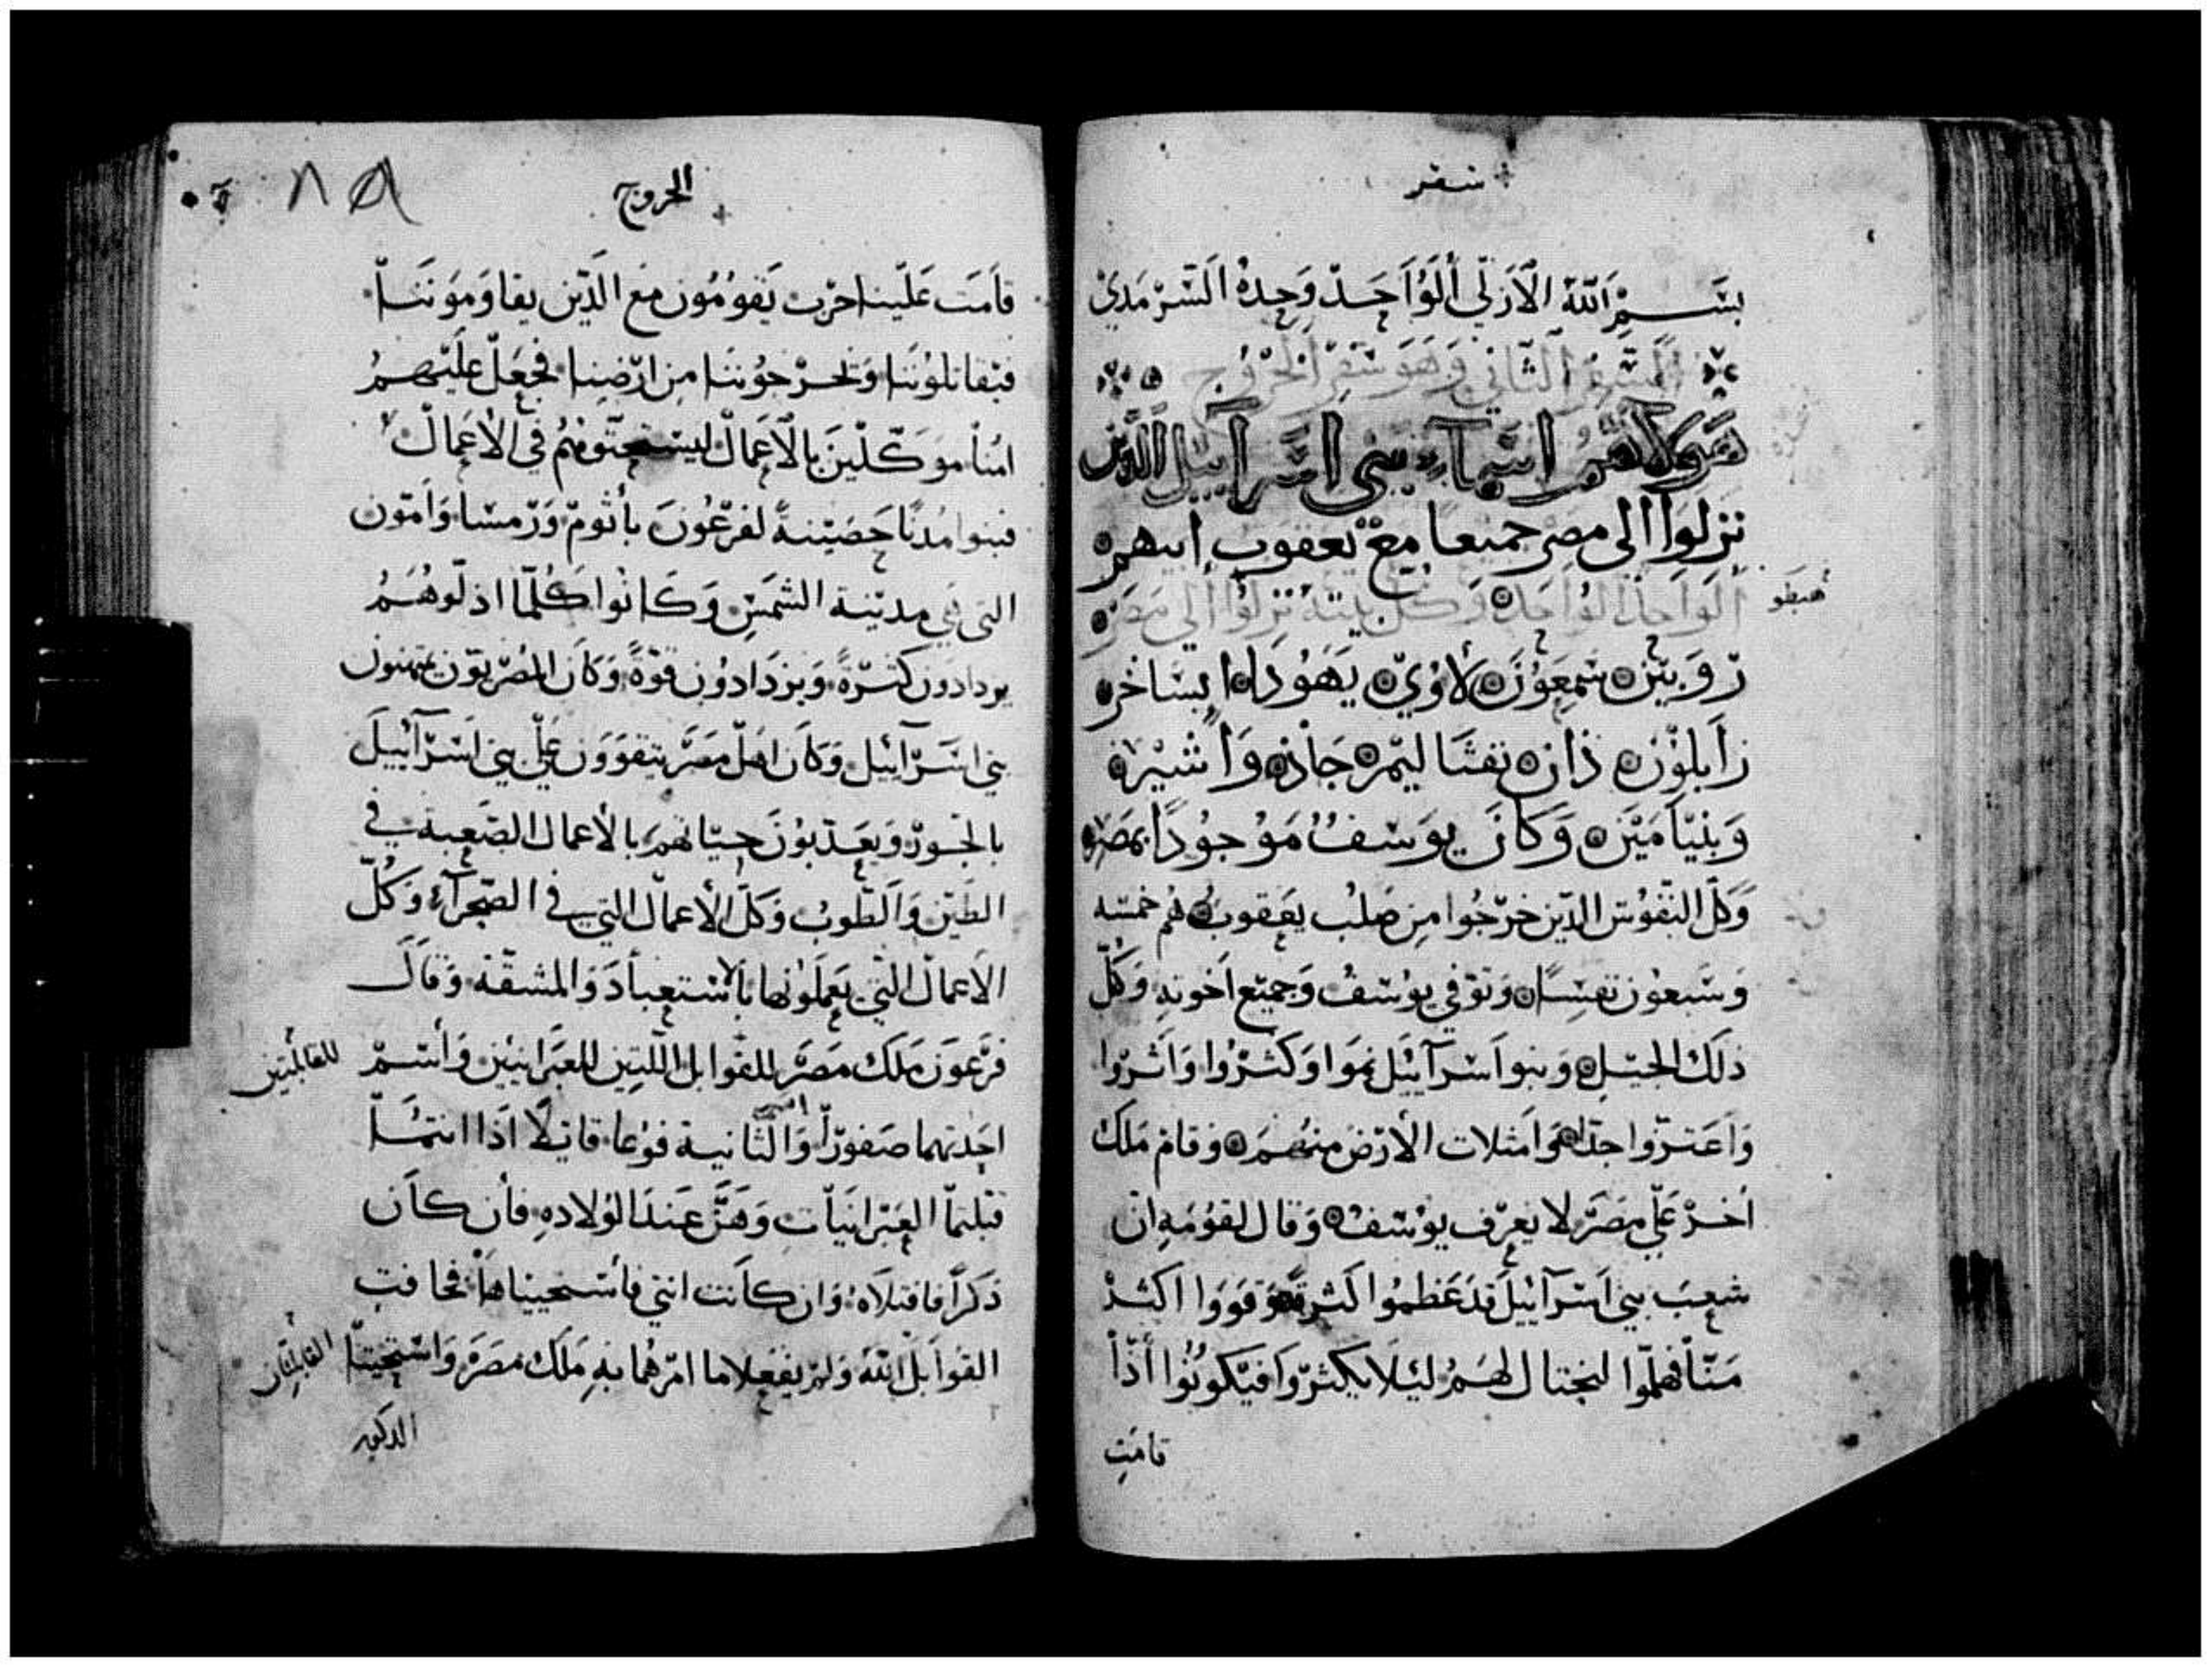 سفر
بسم الله الازلي الواحد وحده السرمدي
السفر الثاني وهو سفر الخروج
هولاهم اسماء بني اسراييل الذين
نزلوا الى مصر جميعا مع يعقوب ابيهم
الواحد الواحد وكل بيته نزلوا الى مصر
هبطو
روبين شمعون لاوي يهودا ايساخر
زابلون ذان نفثاليم جاذ واشير
وبنيامين وكان يوسف موجودا بمصر
وكل النفوس الذين خرجوا من صلب يعقوب هم خمسه
وسبعون نفسا وتوفي يوسف وجميع اخوته وكل
ذلك الجيل وبنوا اسرآئيل نموا وكثروا واثروا
واعتزوا جدا وامتلات الارض منهم وقام ملك
اخر علي مصر لا يعرف يوسف وقال لقومه ان
شعب بني اسرآييل قد عظموا كثرة وقووا اكثر
منا فهلموا لنحتال لهم ليلا يكثروا فيكونوا اذا
قامت
الخروج
٨٥
قامت علينا حرب يقومون مع الذين يقاومونا
فيقاتلوننا ويخرجوننا من ارضنا فجعل عليهم
امنا موكلين بالاعمال ليستحثوهم في الاعمال
فبنوا مدنا حصينة لفرعون باثوم ورمسا وامون
التي هي مدينة الشمس وكانوا كلما اذلوهم
يزدادون كثرة ويزدادون قوة وكان المصريون يمتهنون
بني اسرآئيل وكان اهل مصر يتقوون علي بني اسرآييل
بالجور ويعذبون حياتهم بالاعمال الصعبة في
الطين والطوب وكل الاعمال التي في الصحرآء وكل
الاعمال التي يعملونها بالاستعباد والمشقة وقال
فرعون ملك مصر للقوابل اللتين للعبرانيين واسم
للقابلتين
احدتهما صفورا والثانية فوعا قايلا اذا انتما
قبلتما العبرانيات وهن عند الولاده فان كان
ذكرا فاقتلاه وان كانت انثي فاستحيياها فخافت
القوابل الله ولم يفعلا ما امرهما به ملك مصر واستحيتا
القابلتان
الدكور